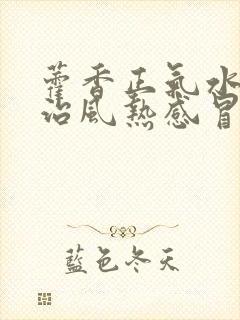 藿香正氣水
治風熱感冒
藍色冬天